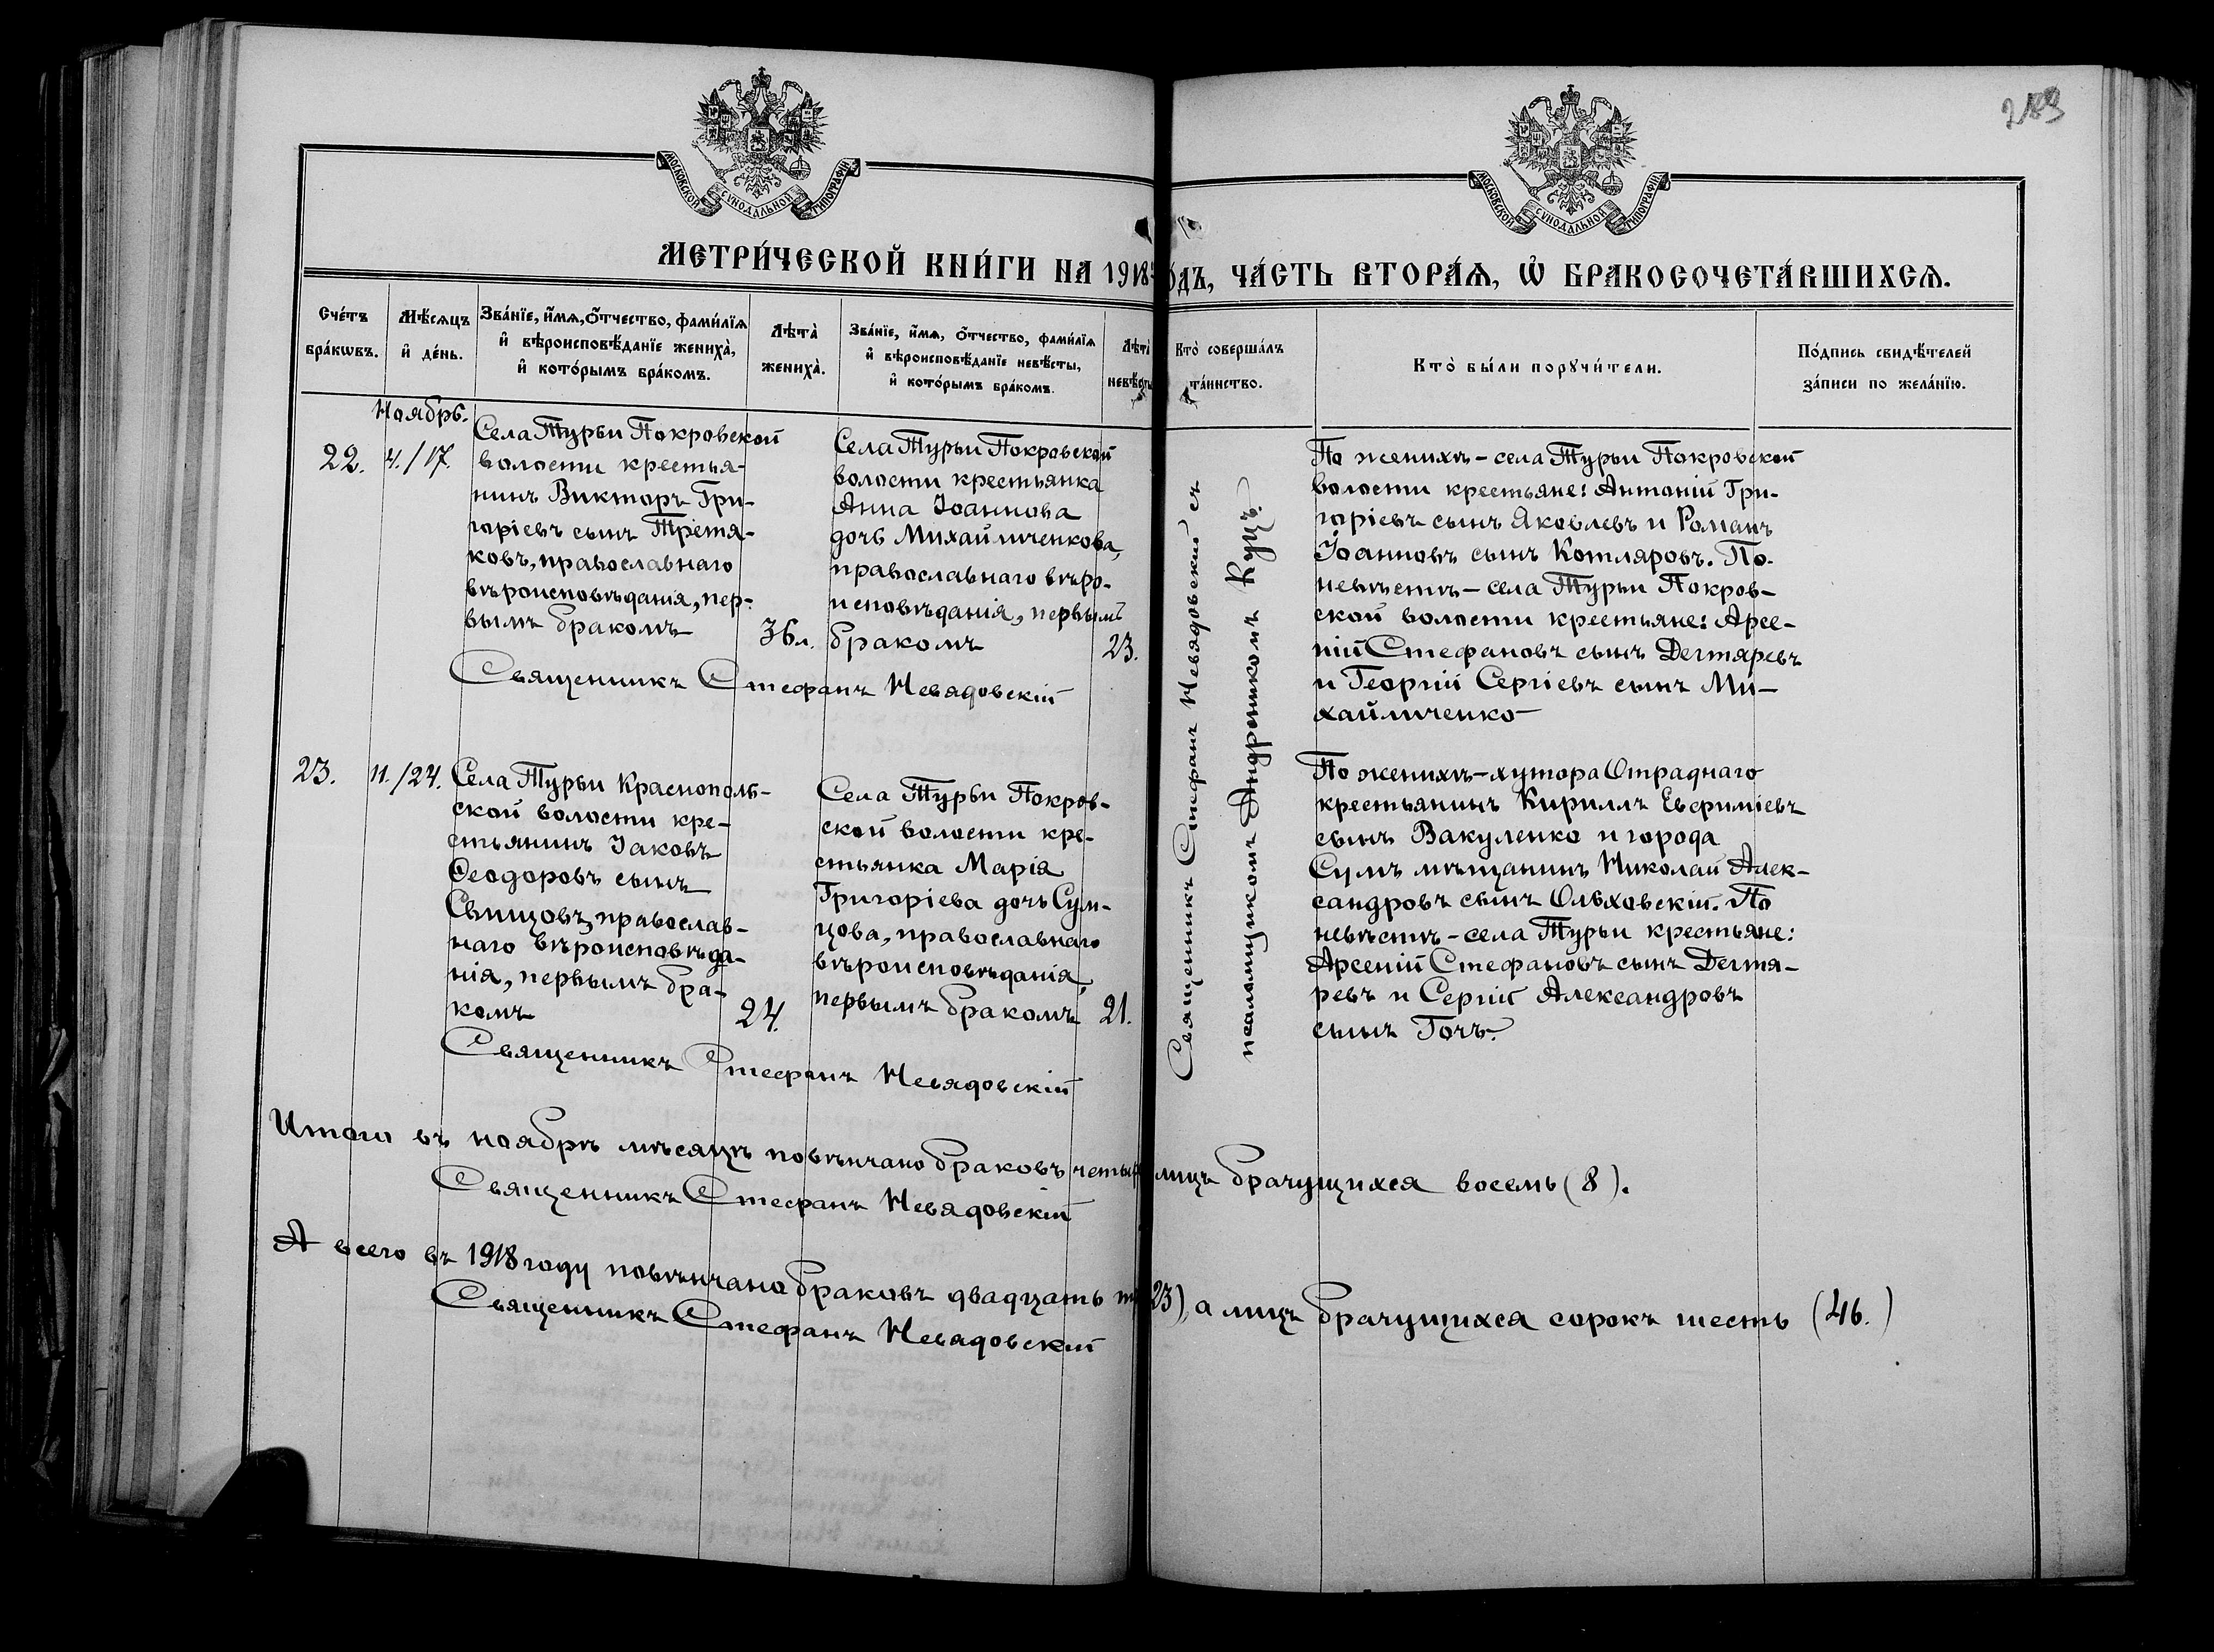 283
МОСКОВСКОЙ СУНОДАЛЬНОЙ ТИПОГРАФІИ
МОСКОВСКОЙ СУНОДАЛЬНОЙ ТИПОГРАФІИ
МЕТРИ́ЧЕСКОЙ КНИ́ГИ НА 1918 ГО́ДЪ, ЧА́СТЬ ВТОРА́Ѧ, Ѽ БРАКОСОЧЕТА́ВШИХСѦ.
Сче́тъ
бра́кѡвъ.
Мѣ́сѧцъ
и҆ де́нь.
Зва́нїе, и҆́мѧ, ѻ҆́тчество, фами́лїѧ
и҆ вѣроисповѣ́данїе жениха̀,
и҆ кото́рымъ бра́комъ.
Лѣта̀
жениха̀.
Зва́нїе, и҆́мѧ, ѻ҆́тчество, фами́лїѧ
и҆ вѣроисповѣ́данїе невѣ́сты,
и҆ кото́рымъ бра́комъ.
Лѣта̀
невѣ́сты
Кто̀ соверша́лъ
та́инство.
Кто̀ бы́ли порꙋчи́тели.
По́дпись свидѣ́телей
за́писи по жела́нїю.
Ноябрь.
22.
4./17.
Села Турьи Покровской
волости крестья-
нинъ Викторъ Гри-
горіевъ сынъ Третя-
ковъ, православнаго
вѣроисповѣданія, пер-
вымъ бракомъ
36 л.
Села Турьи Покровской
волости крестьянка
Анна Іоаннова
дочь Михайличенкова,
православнаго вѣро-
исповѣданія, первымъ
бракомъ
23.
Священникъ Стефанъ Невядовскій
По женихѣ – села Турьи Покровской
волости крестьяне: Антоній Гри-
горіевъ сынъ Яковлевъ и Романъ
Іоанновъ сынъ Котляровъ. По
невѣстѣ – села Турьи Покров-
ской волости крестьяне: Арсе-
ній Стефановъ сынъ Дегтяревъ
и Георгій Сергіевъ сынъ Ми-
хайличенко
Священникъ Стефанъ Невядовскій съ
псаломщикомъ Андреникомъ Куцъ.
23.
11./24.
Села Турьи Краснополь-
ской волости кре-
стьянинъ Іаковъ
Ѳеодоровъ сынъ
Свинцовъ, православ-
наго вѣроисповѣда-
нія, первымъ бра-
комъ
24.
Села Турьи Покров-
ской волости кре-
стьянка Марія
Григоріева дочь Сум-
цова, православнаго
вѣроисповѣданія,
первымъ бракомъ
21.
Священникъ Стефанъ Невядовскій
По женихѣ – хутора Отраднаго
крестьянинъ Кириллъ Евфиміевъ
сынъ Вакуленко и города
Сумъ мѣщанинъ Николай Алек-
сандровъ сынъ Ольховскій. По
невѣстѣ – села Турьи крестьяне:
Арсеній Стефановъ сынъ Дегтя-
ревъ и Сергій Александровъ
сынъ Гочъ.
Итого въ ноябрѣ мѣсяцѣ повѣнчано браковъ четыр лицъ брачущихся восемь (8).
Священникъ Стефанъ Невядовскій
А всего въ 1918 году повѣнчано браковъ двадцать т 23), а лицъ брачущихся сорокъ шесть (46.)
Священникъ Стефанъ Невядовскій